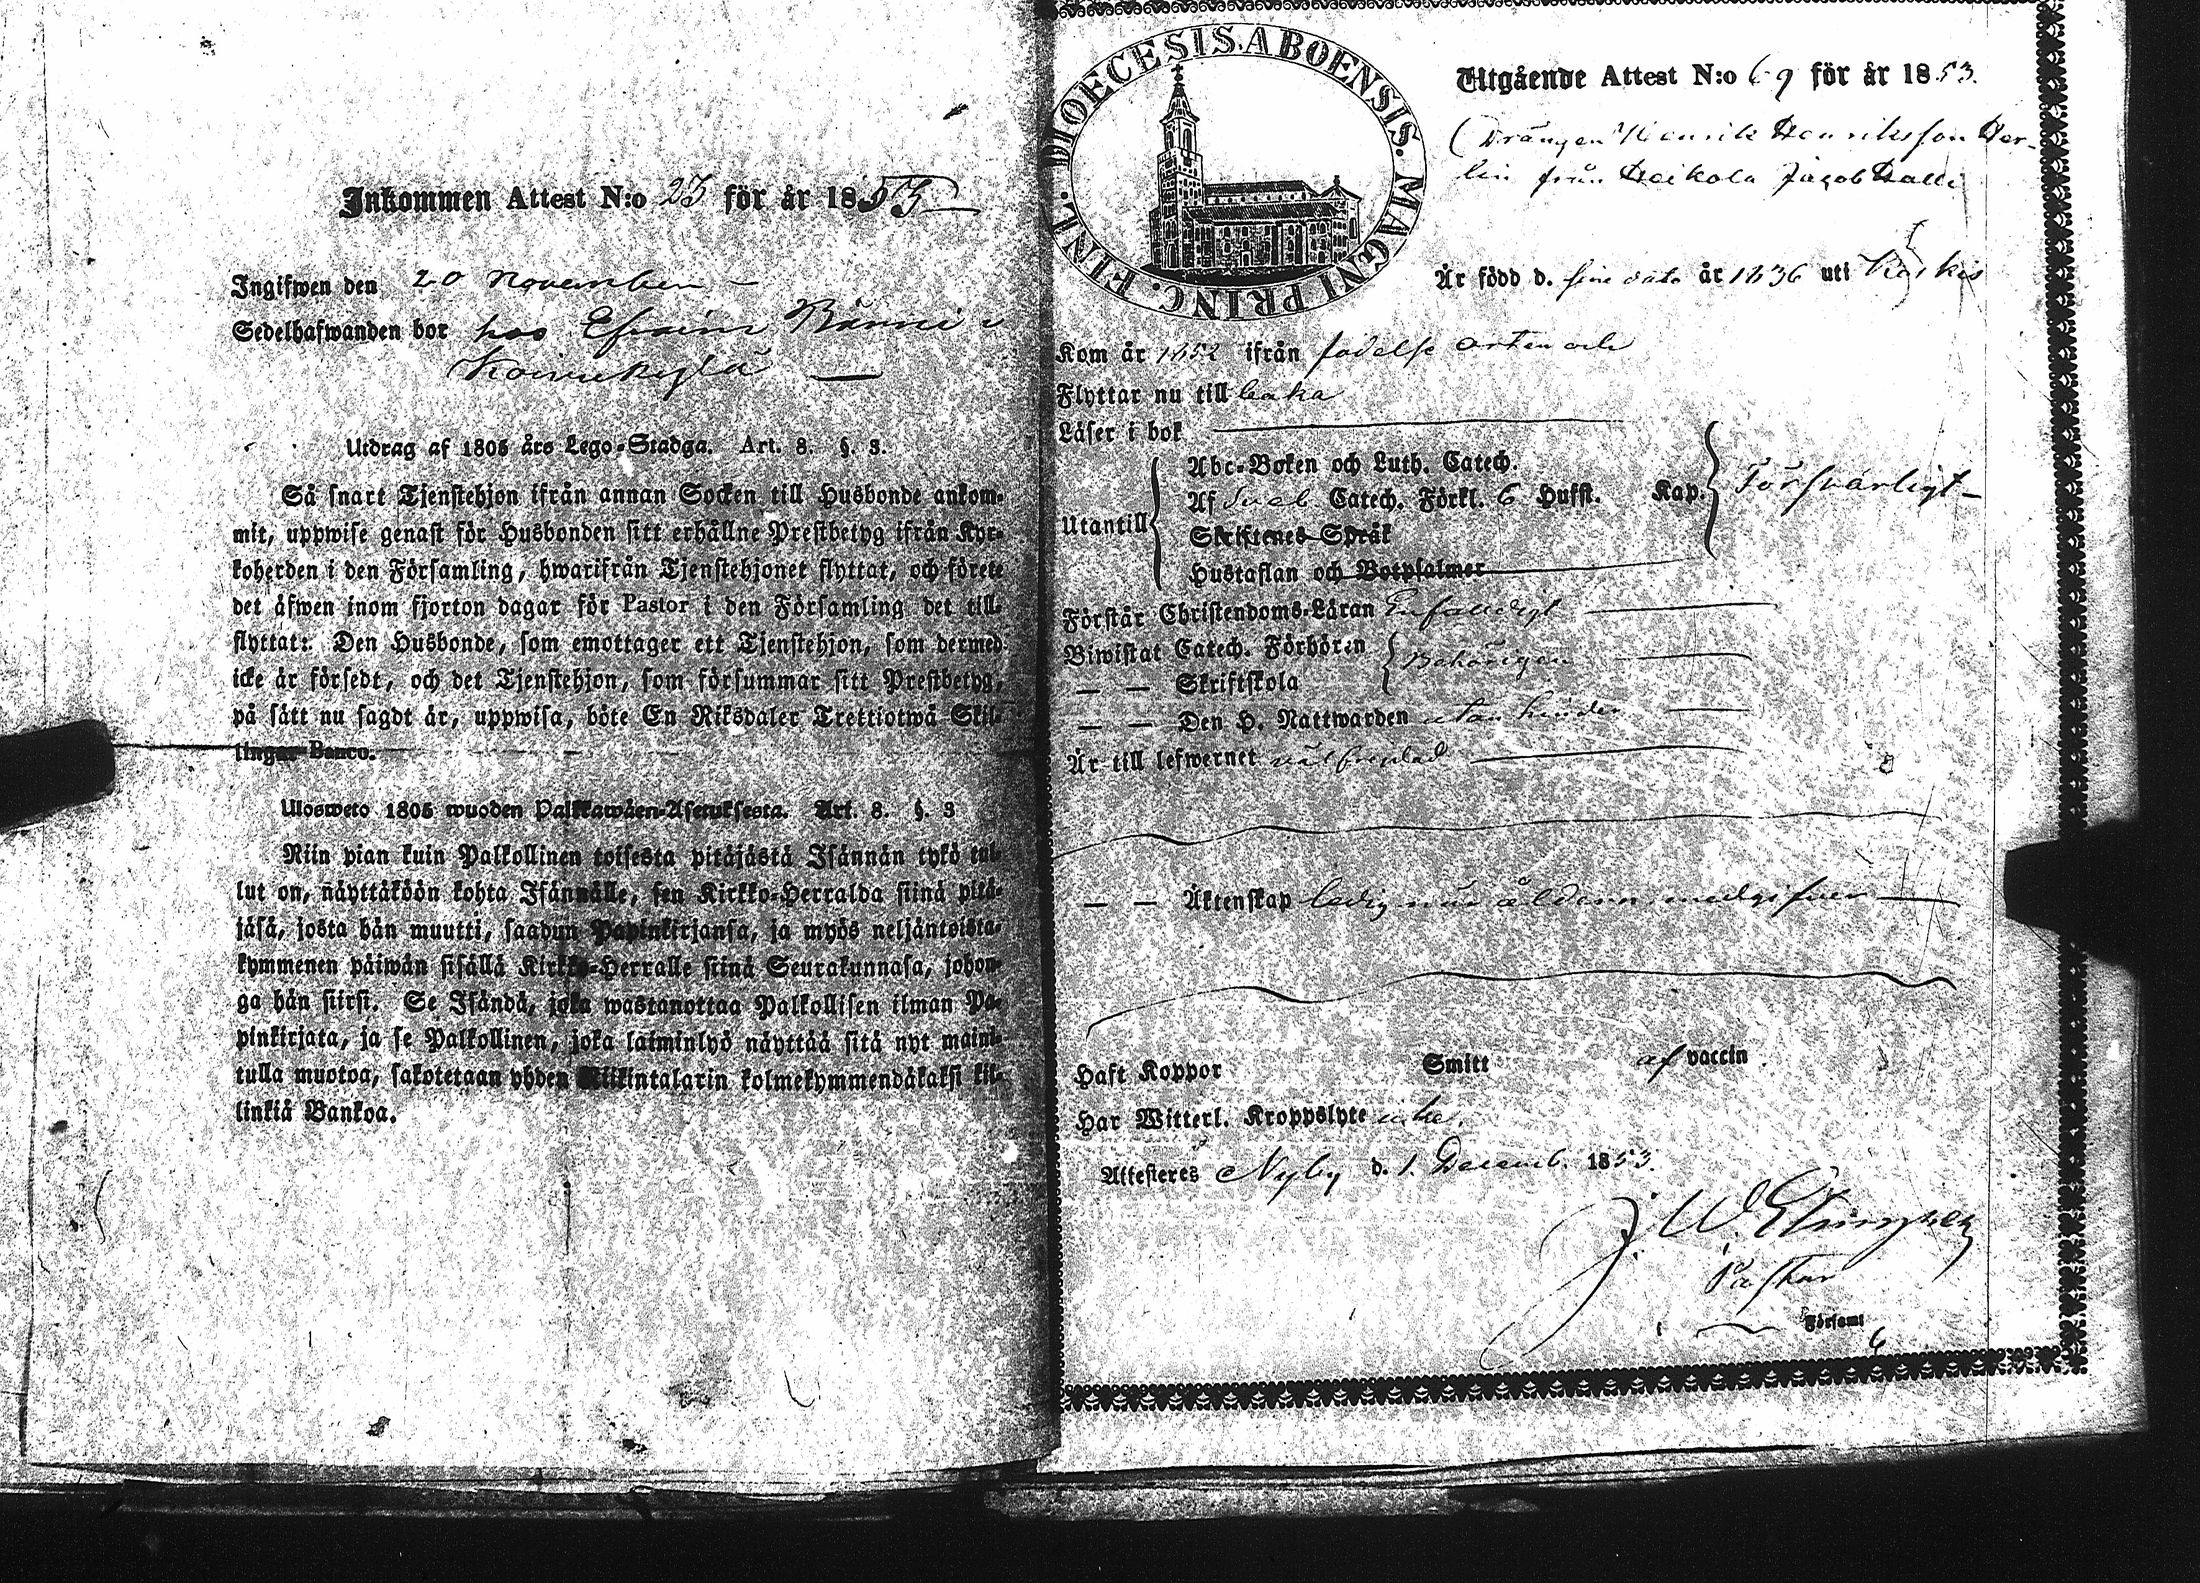 Inkommen Attest N:o 23 för år 1853
Ingifwen den 20 November
Sedelhafwanden bor hos Efraim i
Utdrag af 1805 års Lego-Stadga. Art. 8. §. 3.
Så snart Tjenstehjon ifrån annan Socken till Husbonde ankom-
mit, uppwise genast för Husbonden sitt erhållne Prestbetyg ifrån Kyr-
koherden i den Församling, hwarifrån Tjenstehjonet flyttat, och förete
det äfwen inom fjorton dagar för Pastor i den Församling det till-
flyttat: Den Husbonde, som emottager ett Tjenstehjon, som dermed
icke är försedt, och det Tjenstehjon, som försummar sitt Prestbetyg,
på sätt nu sagdt är, uppwisa, böte En Riksdaler Trettiotwå Skil-
lingar Banco.
Ulosweto 1805 wuoden Palkkawäen-Asetuksesta. Art. 8. §. 3
Niin pian kuin Palkollinen toisesta pitäjästä Isännän tykö tul-
lut on, näyttäköön kohta Isännälle, sen Kirkko-Herralda siinä pitä-
jäsä, josta hän muutti, saadun Papinkirjansa, ja myös neljäntoista-
kymmenen päiwän sisällä Kirkko-Herralle siinä Seurakunnasa, johon-
ga hän siirsi. Se Isändä, joka wastanottaa Palkollisen ilman Pa-
pinkirjata, ja se Palkollinen, joka laiminlyö näyttää sitä nyt maini-
tulla muotoa, sakotetaan yhden Riikintalarin kolmekymmendäkaksi kil-
linkiä Bankoa.
DIOECESIS. ABOENSIS. MAGNI PRINC. FINL.
Utgående Attest N:o 69 för år 1853.
Drängen Henrik Henriksson Her-
lin från Heikola Jacob Dalli
Är född d. sine dato år 1836 uti Koskis
Kom år 1852 ifrån födelse orten och
Flyttar nu till baka
Läser i bok
Utantill
Abc-Boken och Luth. Catech.
Af Sveb Catech. Förkl. 6 Hufst. Kap. Försvarligt
Skriftenes Språk
Hustaflan och Botpsalmer
Förstår Christendoms-Läran Enfaldigt
Biwistat Catech. Förhören Behörigen
— — Skriftskola
— — Den H. Nattwarden utan hinder
Är till lefwernet välfrejdad
— — Äktenskap ledig när åldern medgifver
Haft Koppor Smitt af vaccin
Har Witterl. Kroppslyte icke.
Attesteres Nyby d. 1 Decemb. 1853.
J. W.
Pastor
i Församl
6